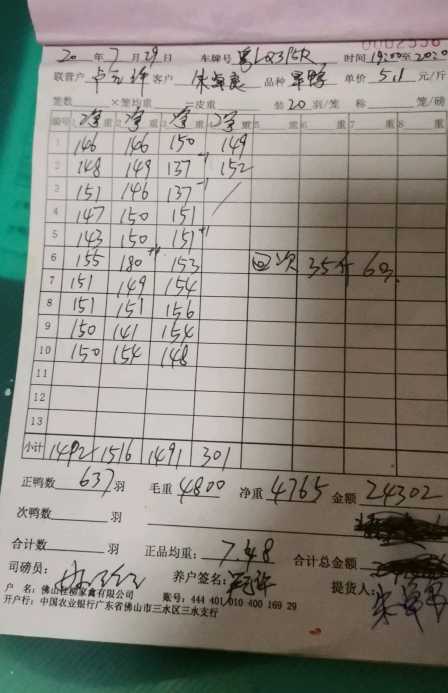 20 年 7 月 29 日 车牌号 粤LQ315R 时间 19:00至20:20
联营户 客户 品种 单价 5.1 元/斤
笼数 ×笼均重 =皮重 装 20 羽/笼 称 笼/磅
编号 1 重 2 重 3 重 4 重 5 重 6 重 7 重 8 重
1 146 146 150 149
2 148 149 137 -1 152
3 151 146 137 -1
4 147 150 151
5 143 150 151 +1
6 155 180 153 回次 35斤 6只
7 151 149 154
8 151 151 156
9 150 141 154
10 150 154 148
11
12
13
小计 1492 1516 1491 301
正鸭数 637 羽 毛重 4800 净重 4765 金额 24302
次鸭数 羽
合计数 羽 正品均重: 7.48 合计总金额
司磅员: 养户签名: 提货人:
户 名: 佛山 家禽有限公司 账号: 444 401 010 400 169 29
开户行: 中国农业银行广东省佛山市三水区三水支行